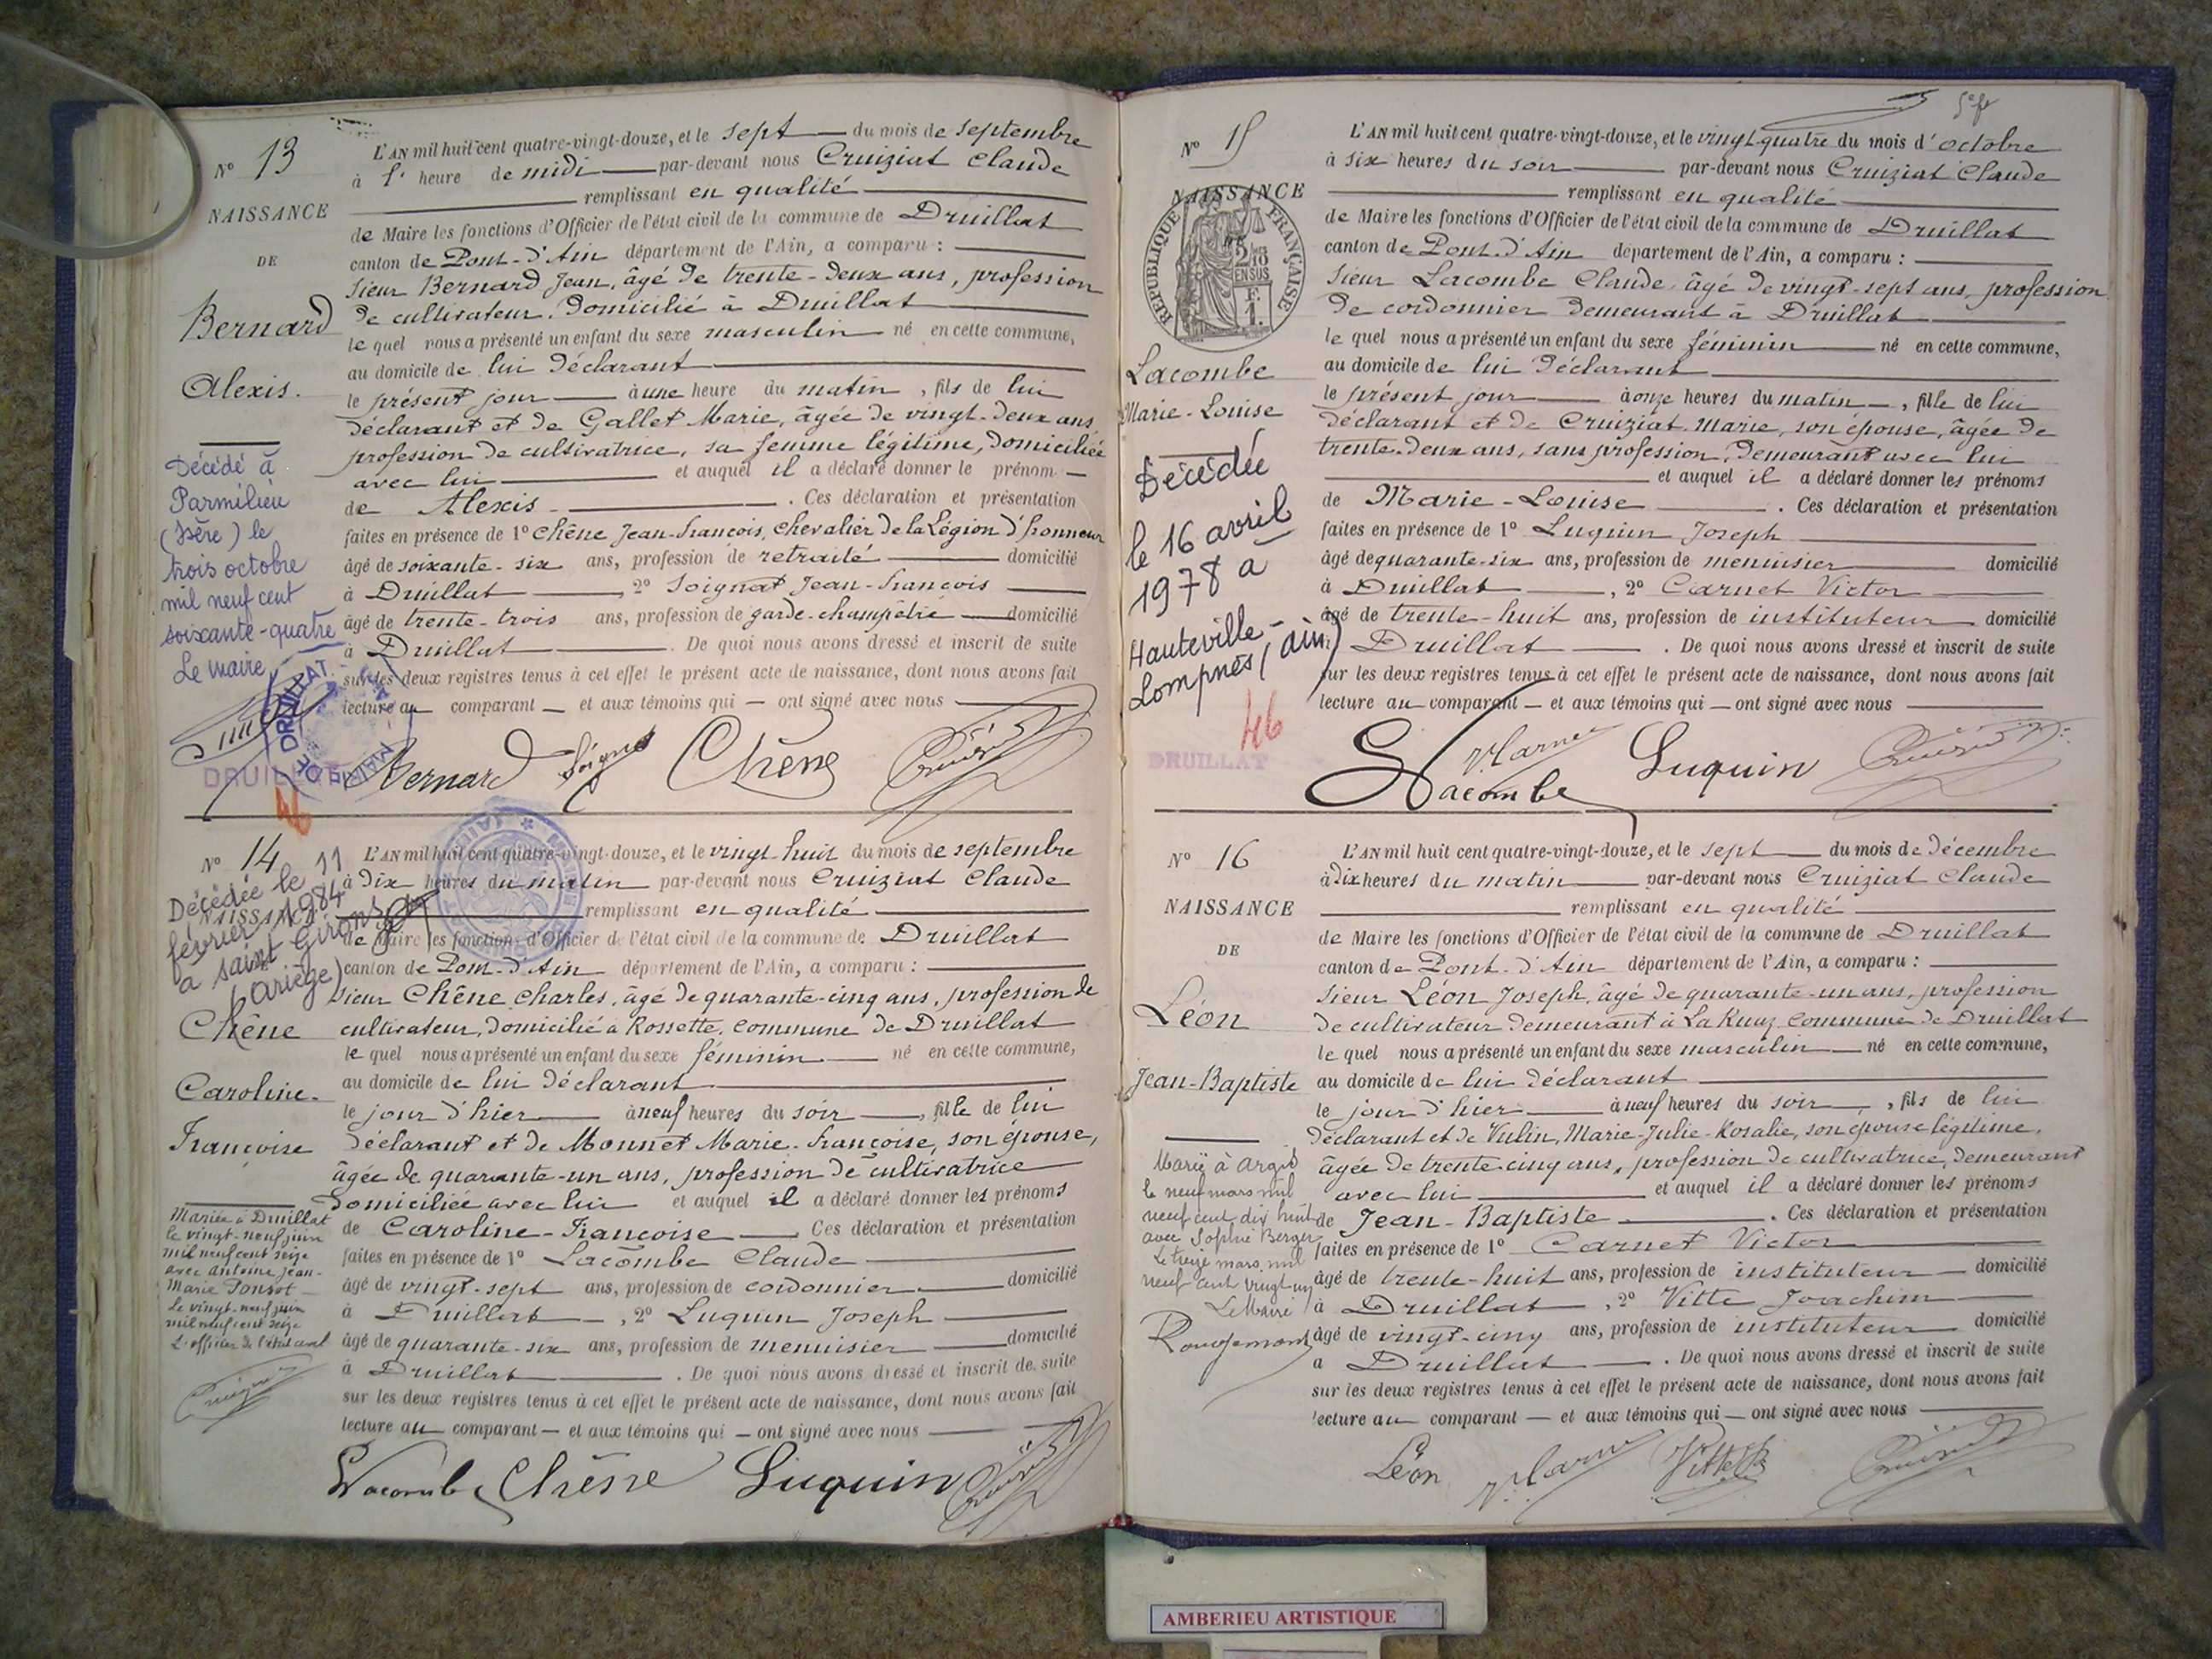 N° 13
NAISSANCE
DE
Bernard
Alexis.
Décédé à
Parmilieu
(Isère) le
trois octobre
mil neuf cent
soixante-quatre
Le maire
DRUILLAT
L'AN mil huit cent quatre-vingt-douze, et le sept du mois de septembre
à 1 heure de midi par-devant nous Cruiziat Claude
remplissant en qualité
de Maire les fonctions d'Officier de l'état civil de la commune de Druillat
canton de Pont-d'Ain département de l'Ain, a comparu :
Sieur Bernard Jean, âgé de trente-deux ans, profession
de cultivateur, domicilié à Druillat
le quel nous a présenté un enfant du sexe masculin né en cette commune,
au domicile de lui déclarant
le présent jour à une heure du matin, fils de lui
déclarant et de Gallet Marie, âgée de vingt-deux ans
profession de cultivatrice, sa femme légitime, domiciliée
avec lui et auquel il a déclaré donner le prénom
de Alexis. Ces déclaration et présentation
faites en présence de 1° Chêne Jean-François, Chevalier de la Légion d'honneur
âgé de soixante-six ans, profession de retraité domicilié
à Druillat, 2° Soignat Jean-François
âgé de trente-trois ans, profession de garde-champêtre domicilié
à Druillat. De quoi nous avons dressé et inscrit de suite
sur les deux registres tenus à cet effet le présent acte de naissance, dont nous avons fait
lecture au comparant et aux témoins qui ont signé avec nous
Bernard Chêne
N° 14
Décédée le 11
février 1984
à saint Girons
(Ariège)
NAISSANCE
Chêne
Caroline-
Françoise
Mariée à Druillat
le vingt-neuf juin
mil neuf cent seize
avec Antoine Jean-
Marie Ponsot
Le vingt-neuf juin
mil neuf cent seize
L'officier de l'état civil
L'AN mil huit cent quatre-vingt-douze, et le vingt huit du mois de septembre
à dix heures du matin par-devant nous Cruiziat Claude
remplissant en qualité
de Maire les fonctions d'Officier de l'état civil de la commune de Druillat
canton de Pont-d'Ain département de l'Ain, a comparu :
Sieur Chêne Charles, âgé de quarante-cinq ans, profession de
cultivateur, domicilié à Rossette, commune de Druillat
le quel nous a présenté un enfant du sexe féminin né en cette commune,
au domicile de lui déclarant
le jour d'hier à neuf heures du soir, fille de lui
déclarant et de Monnet Marie-Françoise, son épouse,
âgée de quarante-un ans, profession de cultivatrice
domiciliée avec lui et auquel il a déclaré donner les prénoms
de Caroline-Françoise Ces déclaration et présentation
faites en présence de 1° Lacombe Claude
âgé de vingt-sept ans, profession de cordonnier domicilié
à Druillat, 2° Luquin Joseph
âgé de quarante-six ans, profession de menuisier domicilié
à Druillat. De quoi nous avons dressé et inscrit de suite
sur les deux registres tenus à cet effet le présent acte de naissance, dont nous avons fait
lecture au comparant et aux témoins qui ont signé avec nous
Lacombe Chêne Luquin
N° 15
NAISSANCE
REPUBLIQUE FRANÇAISE
2/10
EN SUS
Lacombe
Marie-Louise
Décédée
le 16 avril
1978 a
Hauteville-
Lompnes (ain)
46
DRUILLAT
L'AN mil huit cent quatre-vingt-douze, et le vingt-quatre du mois d'octobre
à six heures du soir par-devant nous Cruiziat Claude
remplissant en qualité
de Maire les fonctions d'Officier de l'état civil de la commune de Druillat
canton de Pont-d'Ain département de l'Ain, a comparu :
Sieur Lacombe Claude, âgé de vingt-sept ans, profession
de cordonnier demeurant à Druillat
le quel nous a présenté un enfant du sexe féminin né en cette commune,
au domicile de lui déclarant
le présent jour à onze heures du matin, fille de lui
déclarant et de Cruiziat Marie, son épouse, âgée de
trente-deux ans, sans profession, demeurant avec lui
et auquel il a déclaré donner les prénoms
de Marie-Louise. Ces déclaration et présentation
faites en présence de 1° Luquin Joseph
âgé de quarante-six ans, profession de menuisier domicilié
à Druillat, 2° Carnet Victor
âgé de trente-huit ans, profession de instituteur domicilié
Druillat. De quoi nous avons dressé et inscrit de suite
sur les deux registres tenus à cet effet le présent acte de naissance, dont nous avons fait
lecture au comparant et aux témoins qui ont signé avec nous
Lacombe Luquin
N° 16
NAISSANCE
DE
Léon
Jean-Baptiste
Marié à Argis
le neuf mars mil
neuf cent dix huit
avec Sophie Berger
Le treize mars mil
neuf cent vingt-un
Le Maire
Rougemont
L'AN mil huit cent quatre-vingt-douze, et le sept du mois de décembre
à dix heures du matin par-devant nous Cruiziat Claude
remplissant en qualité
de Maire les fonctions d'Officier de l'état civil de la commune de Druillat
canton de Pont-d'Ain département de l'Ain, a comparu :
Sieur Léon Joseph, âgé de quarante-un ans, profession
de cultivateur demeurant à La Ruaz commune de Druillat
le quel nous a présenté un enfant du sexe masculin né en cette commune,
au domicile de lui déclarant
le jour d'hier à neuf heures du soir, fils de lui
déclarant et de Vulin, Marie-Julie-Rosalie, son épouse légitime,
âgée de trente-cinq ans, profession de cultivatrice, demeurant
avec lui et auquel il a déclaré donner les prénoms
de Jean-Baptiste. Ces déclaration et présentation
faites en présence de 1° Carnet Victor
âgé de trente-huit ans, profession de instituteur domicilié
à Druillat, 2° Vitte Joachim
âgé de vingt-cinq ans, profession de instituteur domicilié
a Druillat. De quoi nous avons dressé et inscrit de suite
sur les deux registres tenus à cet effet le présent acte de naissance, dont nous avons fait
lecture au comparant et aux témoins qui ont signé avec nous
Léon
AMBERIEU ARTISTIQUE